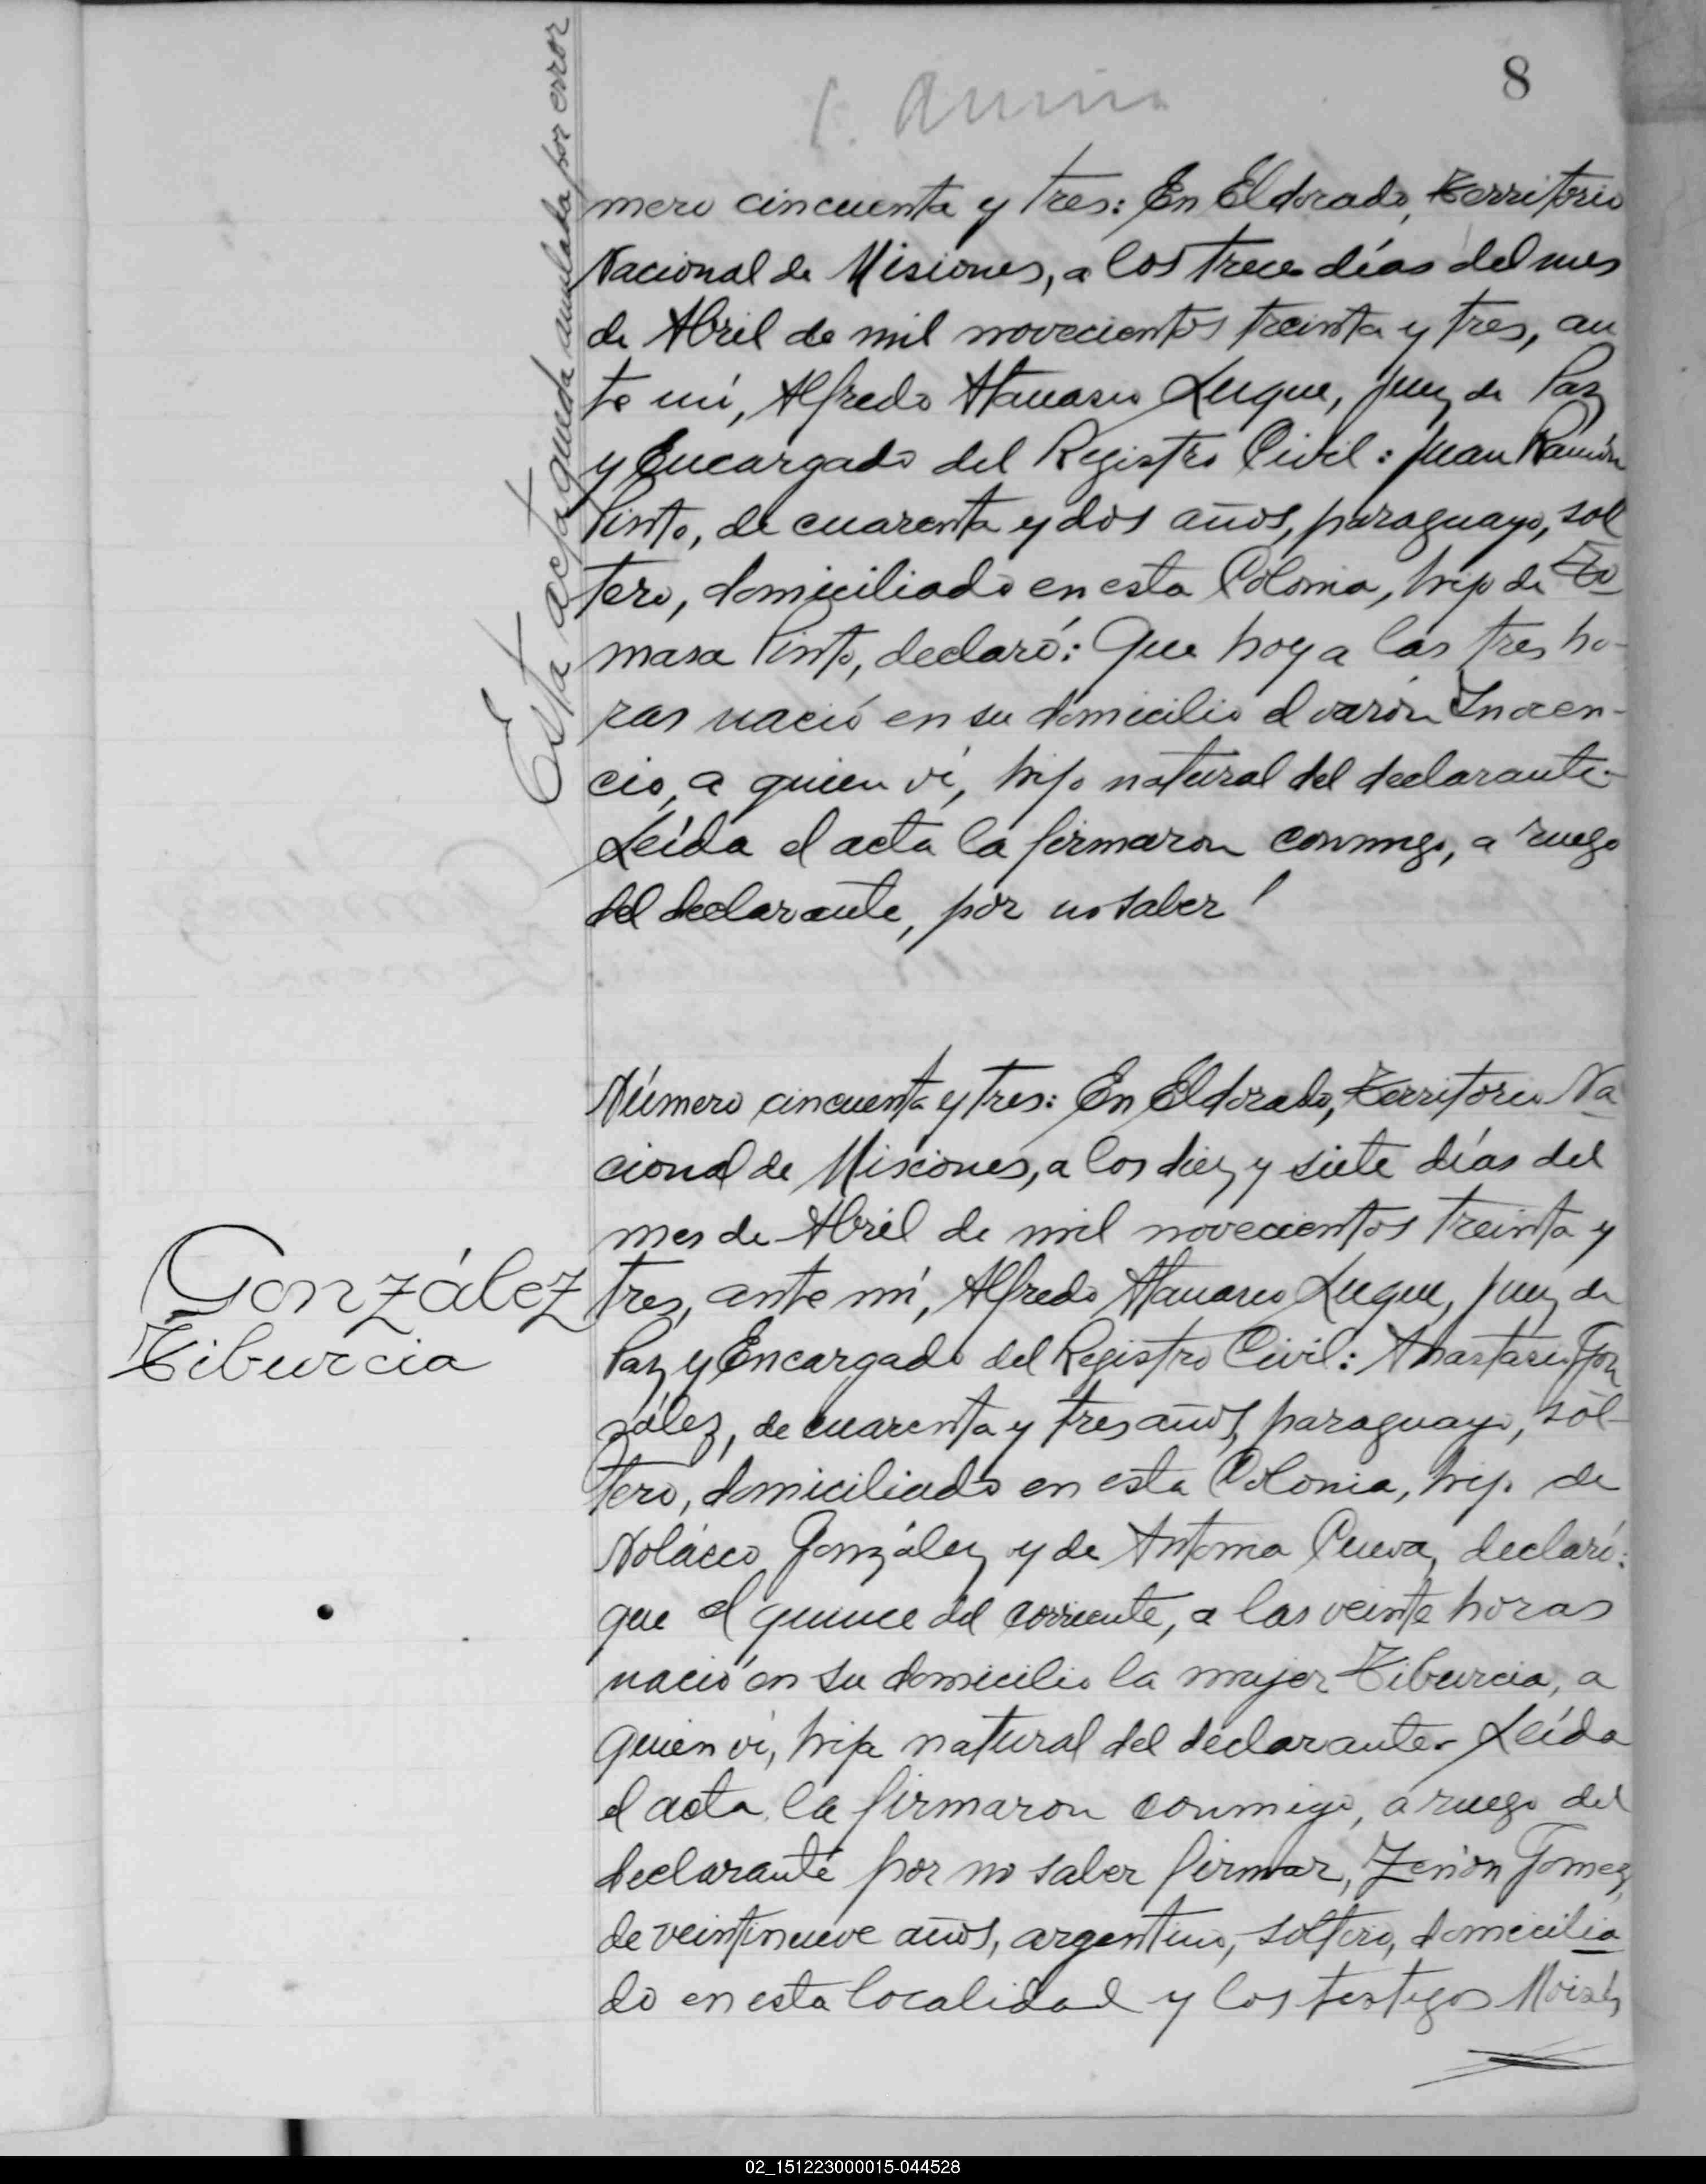 8
Esta acta queda anulada por error
mero cincuenta y tres: En Eldorado, Territorio
Nacional de Misiones, a los trece días del mes
de Abril de mil novecientos treinta y tres, an
te mí, Alfredo Atanasio Luque, Juez de Paz
y Encargado del Registro Civil: Juan Ramón
Pinto, de cuarenta y dos años, paraguayo, sol
tero, domiciliado en esta Colonia, hijo de To
masa Pinto, declaró: Que hoy a las tres ho-
ras nació en su domicilio el varón Inocen-
cio, a quien ví, hijo natural del declarante.-
Leída el acta la firmaron conmigo, a ruego
del declarante, por no saber
Número cincuenta y tres: En Eldorado, Territorio Na
cional de Misiones, a los diez y siete días del
mes de Abril de mil novecientos treinta y
González
Tiburcia
tres, ante mí, Alfredo Atanasio Luque, Juez de
Paz y Encargado del Registro Civil: Anastasio Gon
zález, de cuarenta y tres años, paraguayo, sol-
tero, domiciliado en esta Colonia, hijo de
Nolasco González y de Antonia Cueva, declaró:
que el quince del corriente, a las veinte horas
nació en su domicilio la mujer Tiburcia, a
quien ví, hija natural del declarante.- Leída
el acta la firmaron conmigo, a ruego del
declarante por no saber firmar, Zenón Gomez,
de veintinueve años, argentino, soltero, domicilia
do en esta localidad y los testigos Moisés
02_151223000015-044528